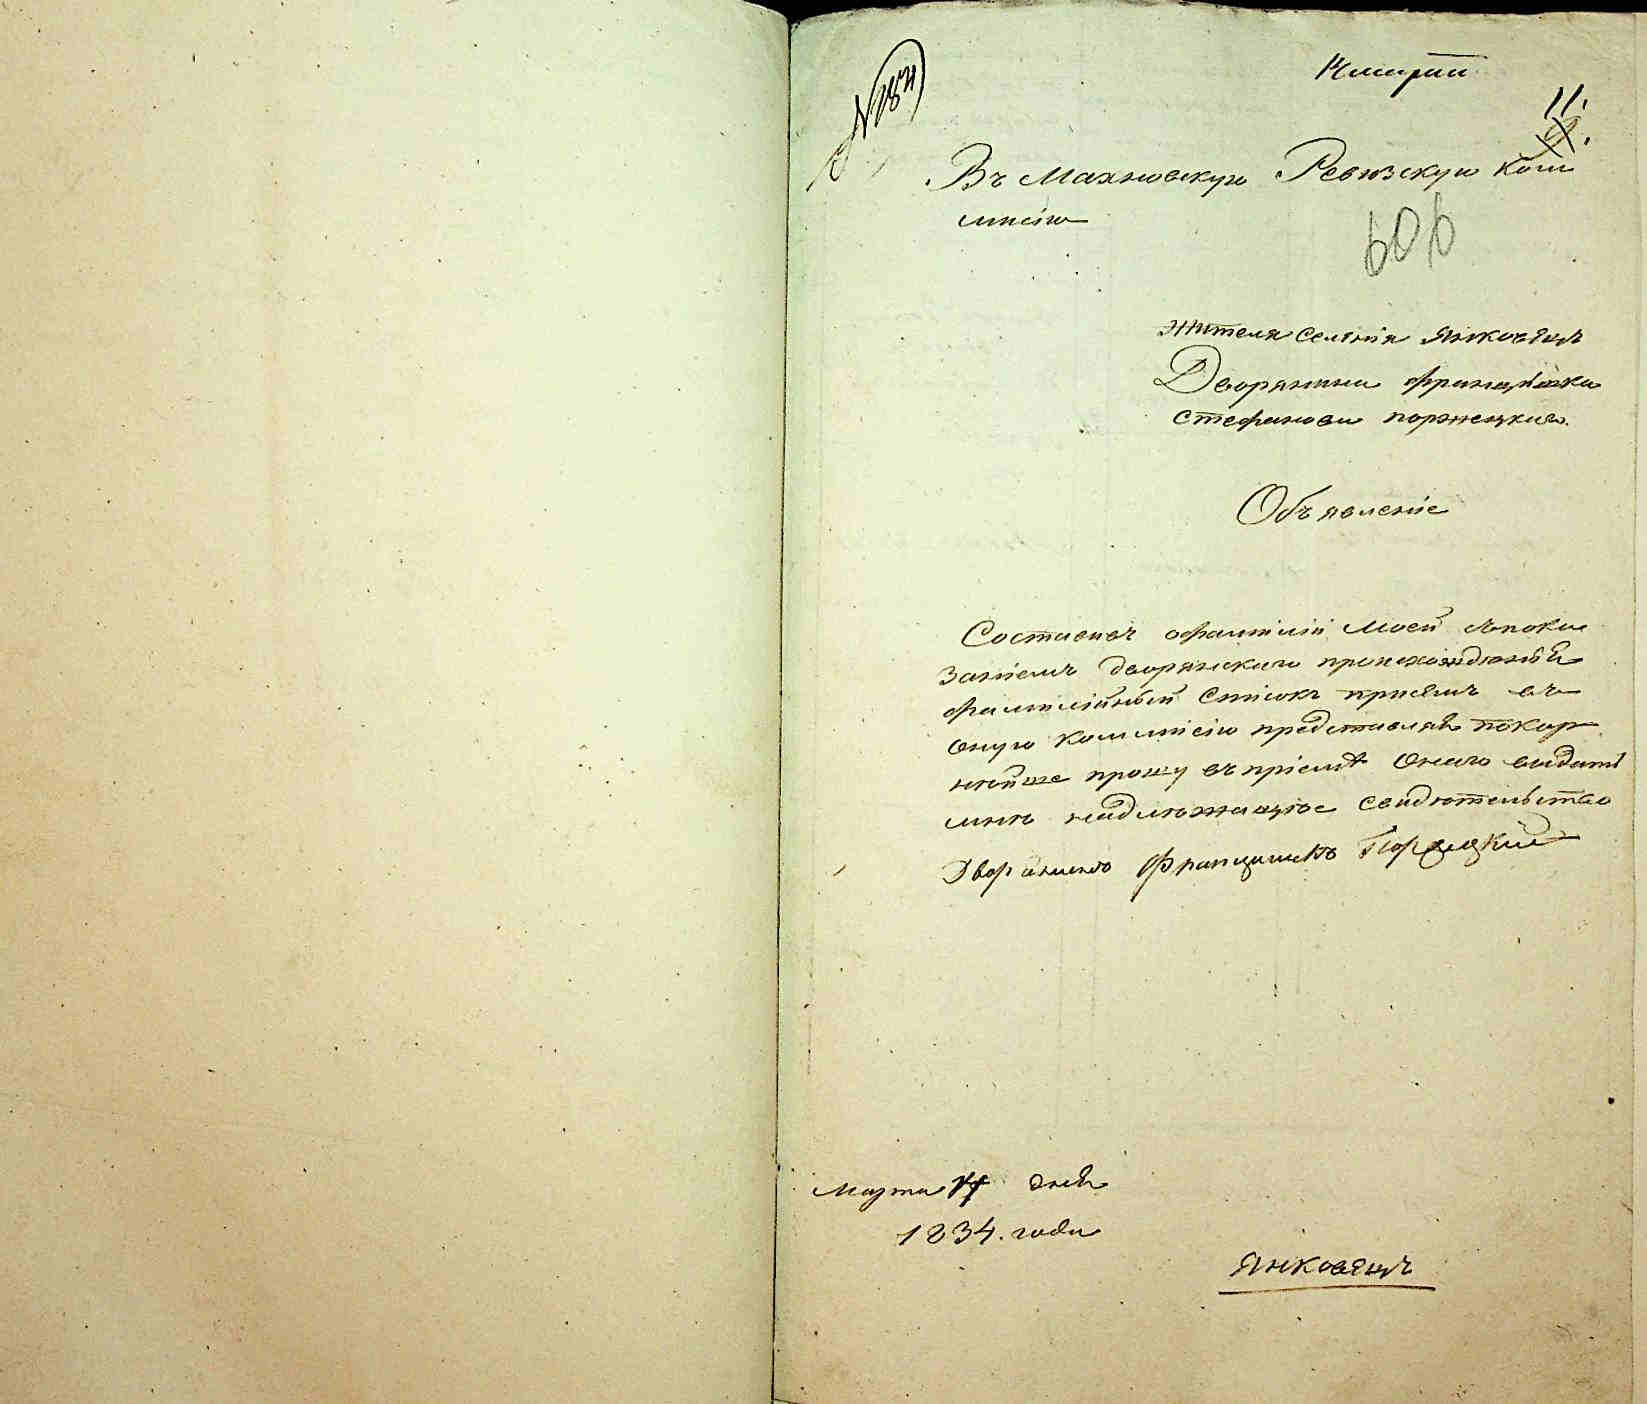 № 184
14 марта
11.
Въ Махновскую Ревизскую Ком
мисію
606
Жителя Селенія Янковецъ
Дворянина Францишка
Стефанова Поржецкаго
Объявленіе
Составивъ офамиліи моей съпока
заніемъ дворянскаго происхожденія
фамилійный списокъ присемъ въ
оную коммисію представляя покор
нейше прошу въпріемѣ онаго выдать
мнѣ надлежащее свидѣтельство
Дворянинъ Францишекъ Поржецкій
Марта 14 дня
1834. года
Янковецъ